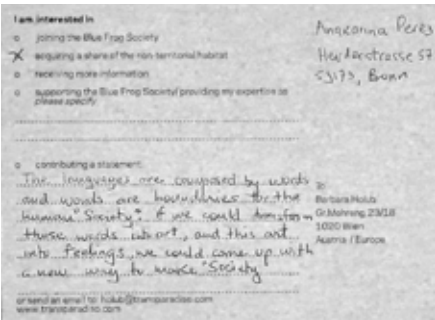 I am interested in
o joining the Blue Frog Society
X acquiring a share of the non-territorial habitat
o receiving more information
o supporting the Blue Frog Society/ providing my expertise as
please specify
o contributing a statement:
The languages are composed by words
and words are boundaries for the
human "Society". if we could transform
these words into art, and this art
into feelings we could come up with
a new way to make "Society"
or send an email to: holub@transparadiso.com
www.transparadiso.com
Perez
53173, Bonn
To
Barbara Holub
Gr.Mohreng. 23/18
1020 Wien
Austria / Europe